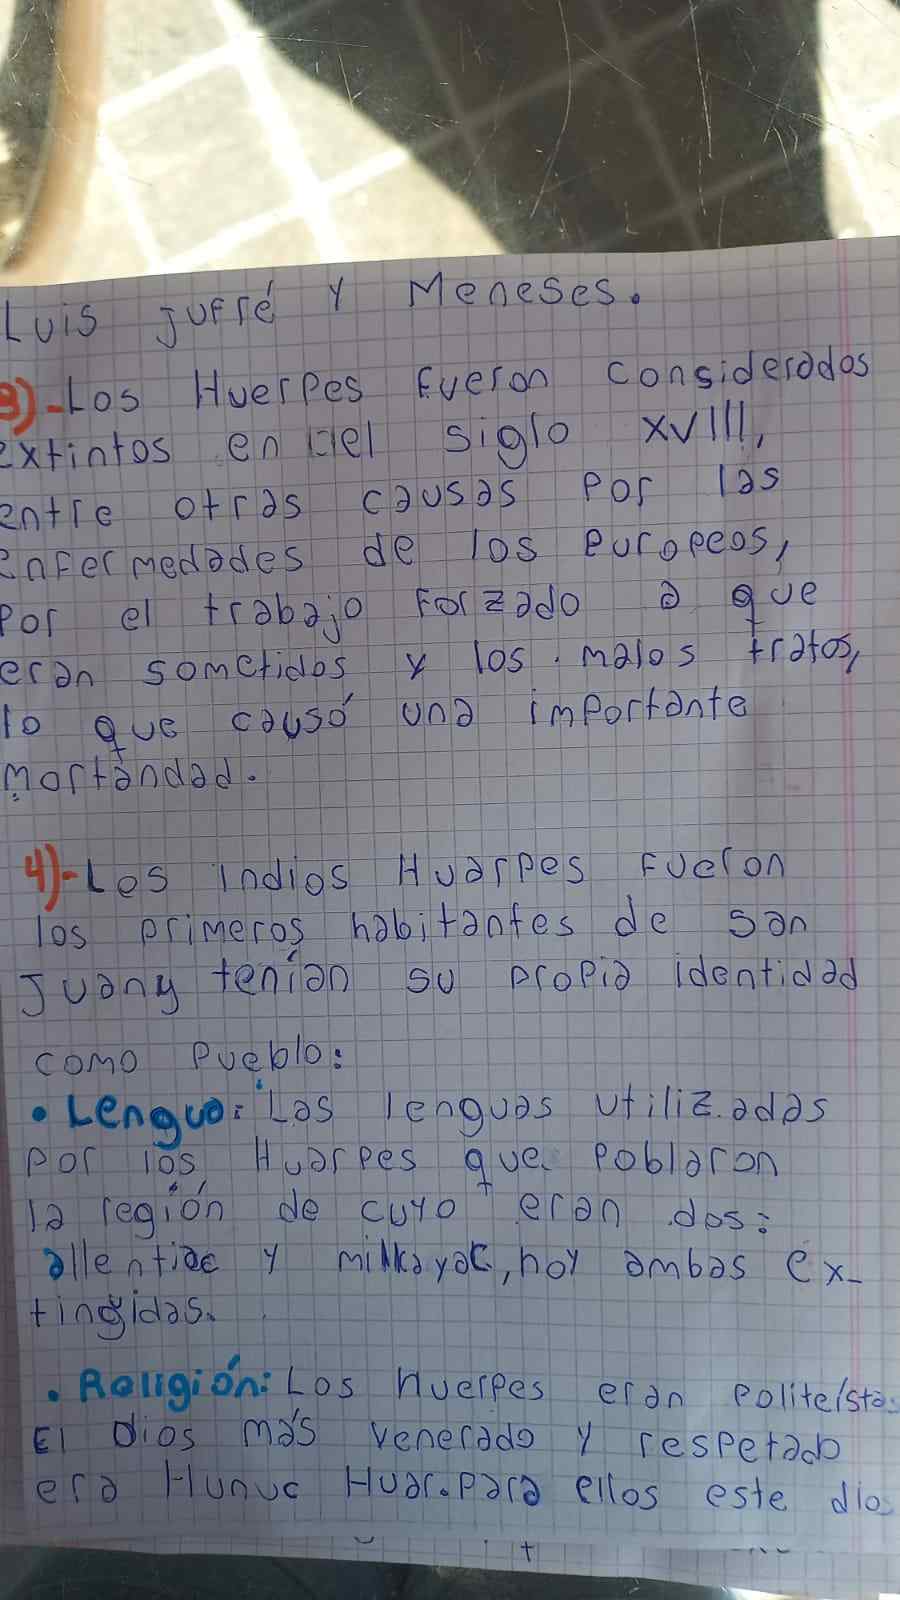 Luis Jufré y Meneses.
3)-Los Huerpes fueron considerados
extintos en el siglo XVIII,
entre otras causas por las
enfermedades de los europeos,
por el trabajo forzado a que
eran sometidos y los malos tratos,
lo que causó una importante
mortandad.
4)-Los indios Huarpes fueron
los primeros habitantes de san
Juan y tenían su propia identidad
como pueblo:
• Lengua: Las lenguas utilizadas
por los Huarpes que poblaron
la región de cuyo eran dos:
allentiac y milkayac, hoy ambas ex-
tingidas.
• Religión: Los huerpes eran politeísta
El dios más venerado y respetado
era Hunuc Huar. para ellos este dios